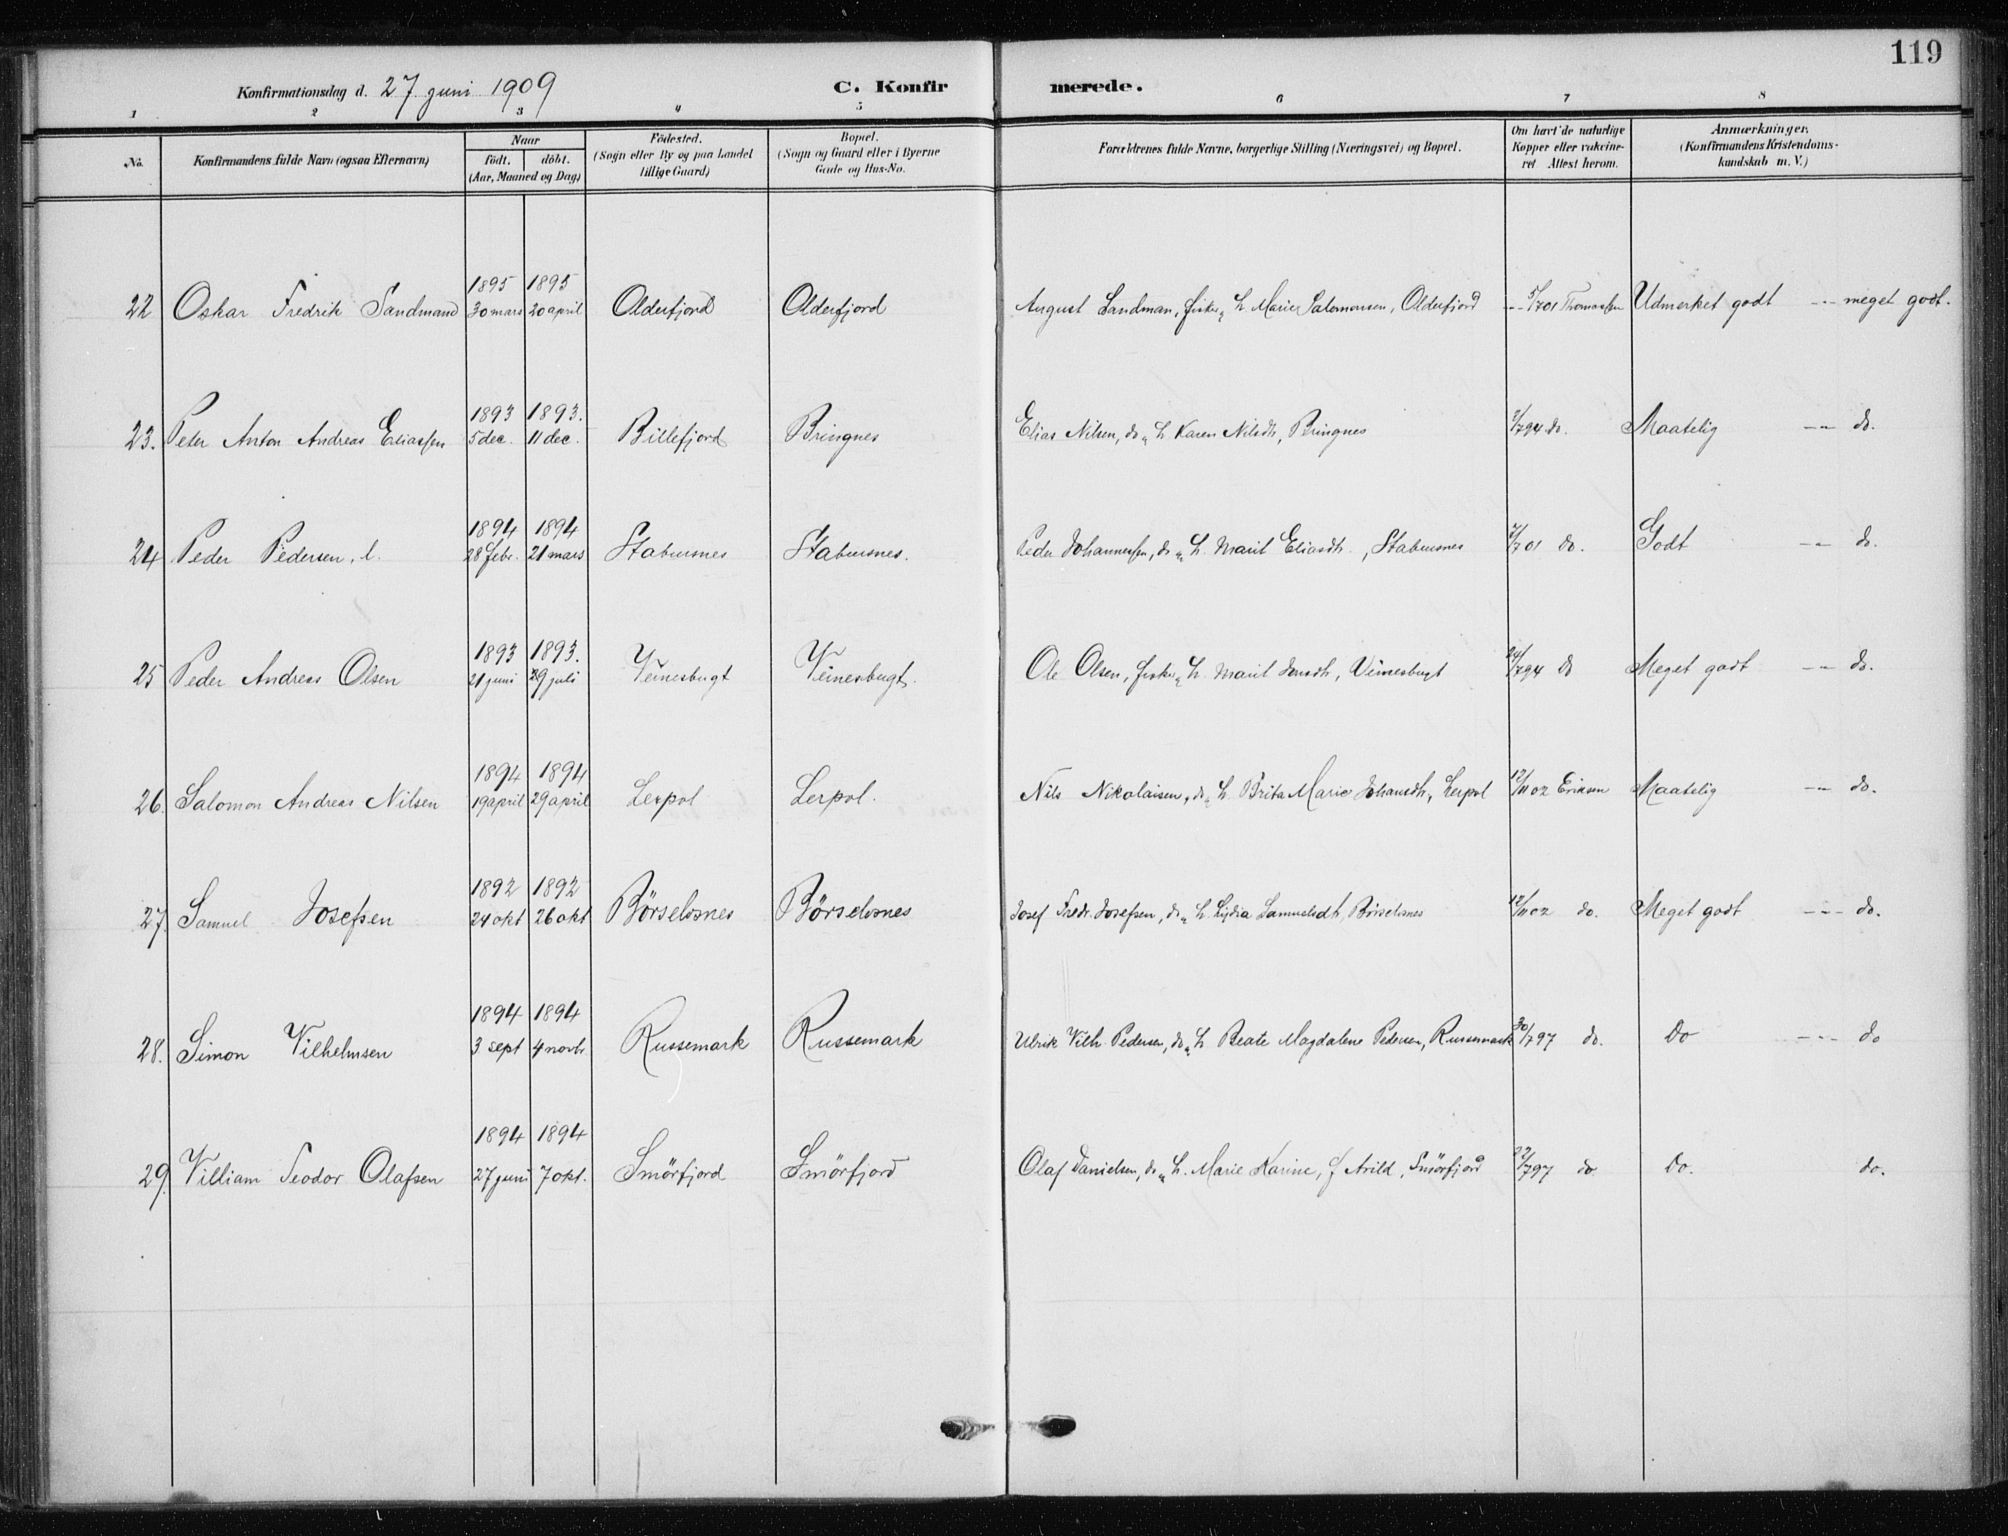 119
Konfirmationsdag d. 27. juni 1909 C. Konfirmerede.
1 2 3 4 5 6 7 8
No. Konfirmandens fulde Navn (ogsaa Efternavn) Naar født. døbt. (Aar, Maaned og Dag) Fødested. (Sogn eller By og paa Landet tillige Gaard) Bopæl. (Sogn og Gaard eller i Byerne Gade og Hus-No. Forældrenes fulde Navne, borgerlige Stilling (Næringsvei) og Bopæl. Om havt de naturlige Kopper eller vaccineret Attest herom. Anmærkninger. (Konfirmandens Kristendomskundskab m. V.)
1895 1895
22 Oskar Fredrik Sandmand 30 mars 20 april Olderfjord Olderfjord August Sandman, fisker, h. Marie Salomonsen, Olderfjord 5/7 01 Thomassen Udmerket godt --- meget godt.
1893 1893.
23. Peter Anton Andreas Eliassen 5 dec. 11 dec. Billefjord Bringnes Elias Nilsen, do, h. Karen Nilsdt, Bringnes /7 94 do. Maatelig -- do.
1894 1894
24 Peder Pedersen, l. 28 febr. 21 mars Stabursnes Stabursnes. Peder Johannessen, do, h. Marit Eliasdt., Stabursnes /7 01 do. Godt -- do.
1893 1893.
25 Peder Andreas Olsen 21 juni 29 juli Veinesbugt Veinesbugt. Ole Olsen, fisker, h. Marit Jensdt, Veinesbugt 24/7 94 do Meget godt -- do.
1894 1894
26. Salomon Andreas Nilsen 19 april 29 april Lerpol Lerpol. Nils Nikolaisen, do, h. Brita Marie Johansdt, Lerpol 12/11 02 Eriksen Maatelig -- do.
1892 1892
27. Samuel Josefsen 24 okt 26 okt Børselvsnes Børselvsnes Josef Fredr. Josefsen, do, h. Lydia Samuelsdt, Børselvsnes 12/11 02 do. Meget godt --- do.
1894 1894
28. Simon Vilhelmsen 3 sept 4 novb. Russemark Russemark Ulrik Vilh. Pedersen, do, h. Beate Magdalene Pedersen, Russemark 30/7 97 do. Do --- do
1894 1894
29. Villiam Teodor Olafsen 27 juni 7 okt. Smörfjord Smörfjord Olaf Danielsen, do, h. Marie Karine, f. Arild, Smörfjord 22/7 97 do Do. do.